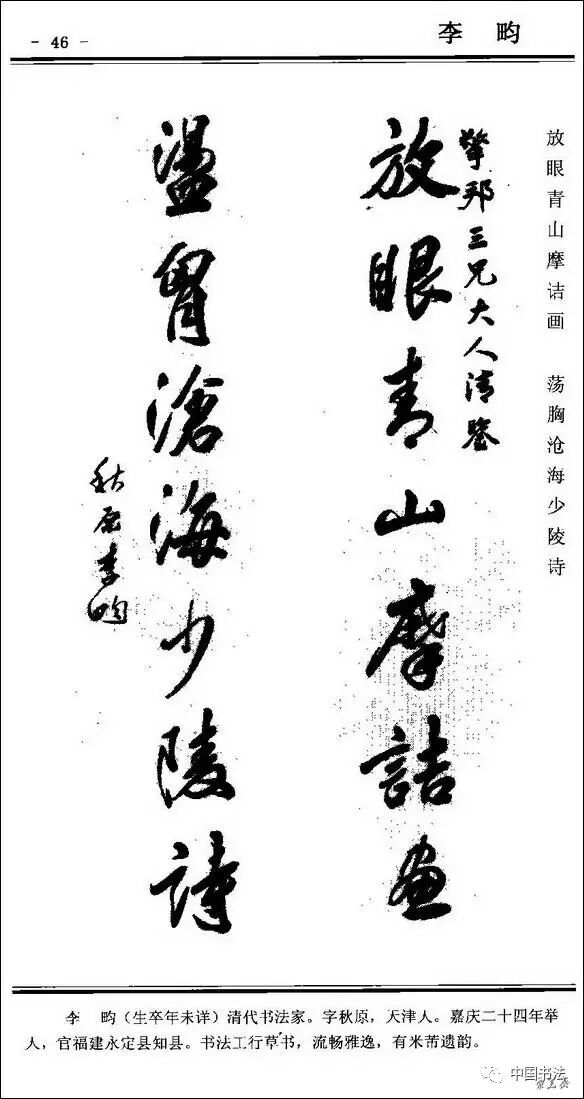 - 46 -
李 畇
放眼青山摩诘画 荡胸沧海少陵诗
擎邦三兄大人清鑒
放眼青山摩詰畫
盪胷滄海少陵詩
秋原李畇
李 畇(生卒年未详)清代书法家。字秋原,天津人。嘉庆二十四年举
人,官福建永定县知县。书法工行草书,流畅雅逸,有米苦遗韵。
中国书法